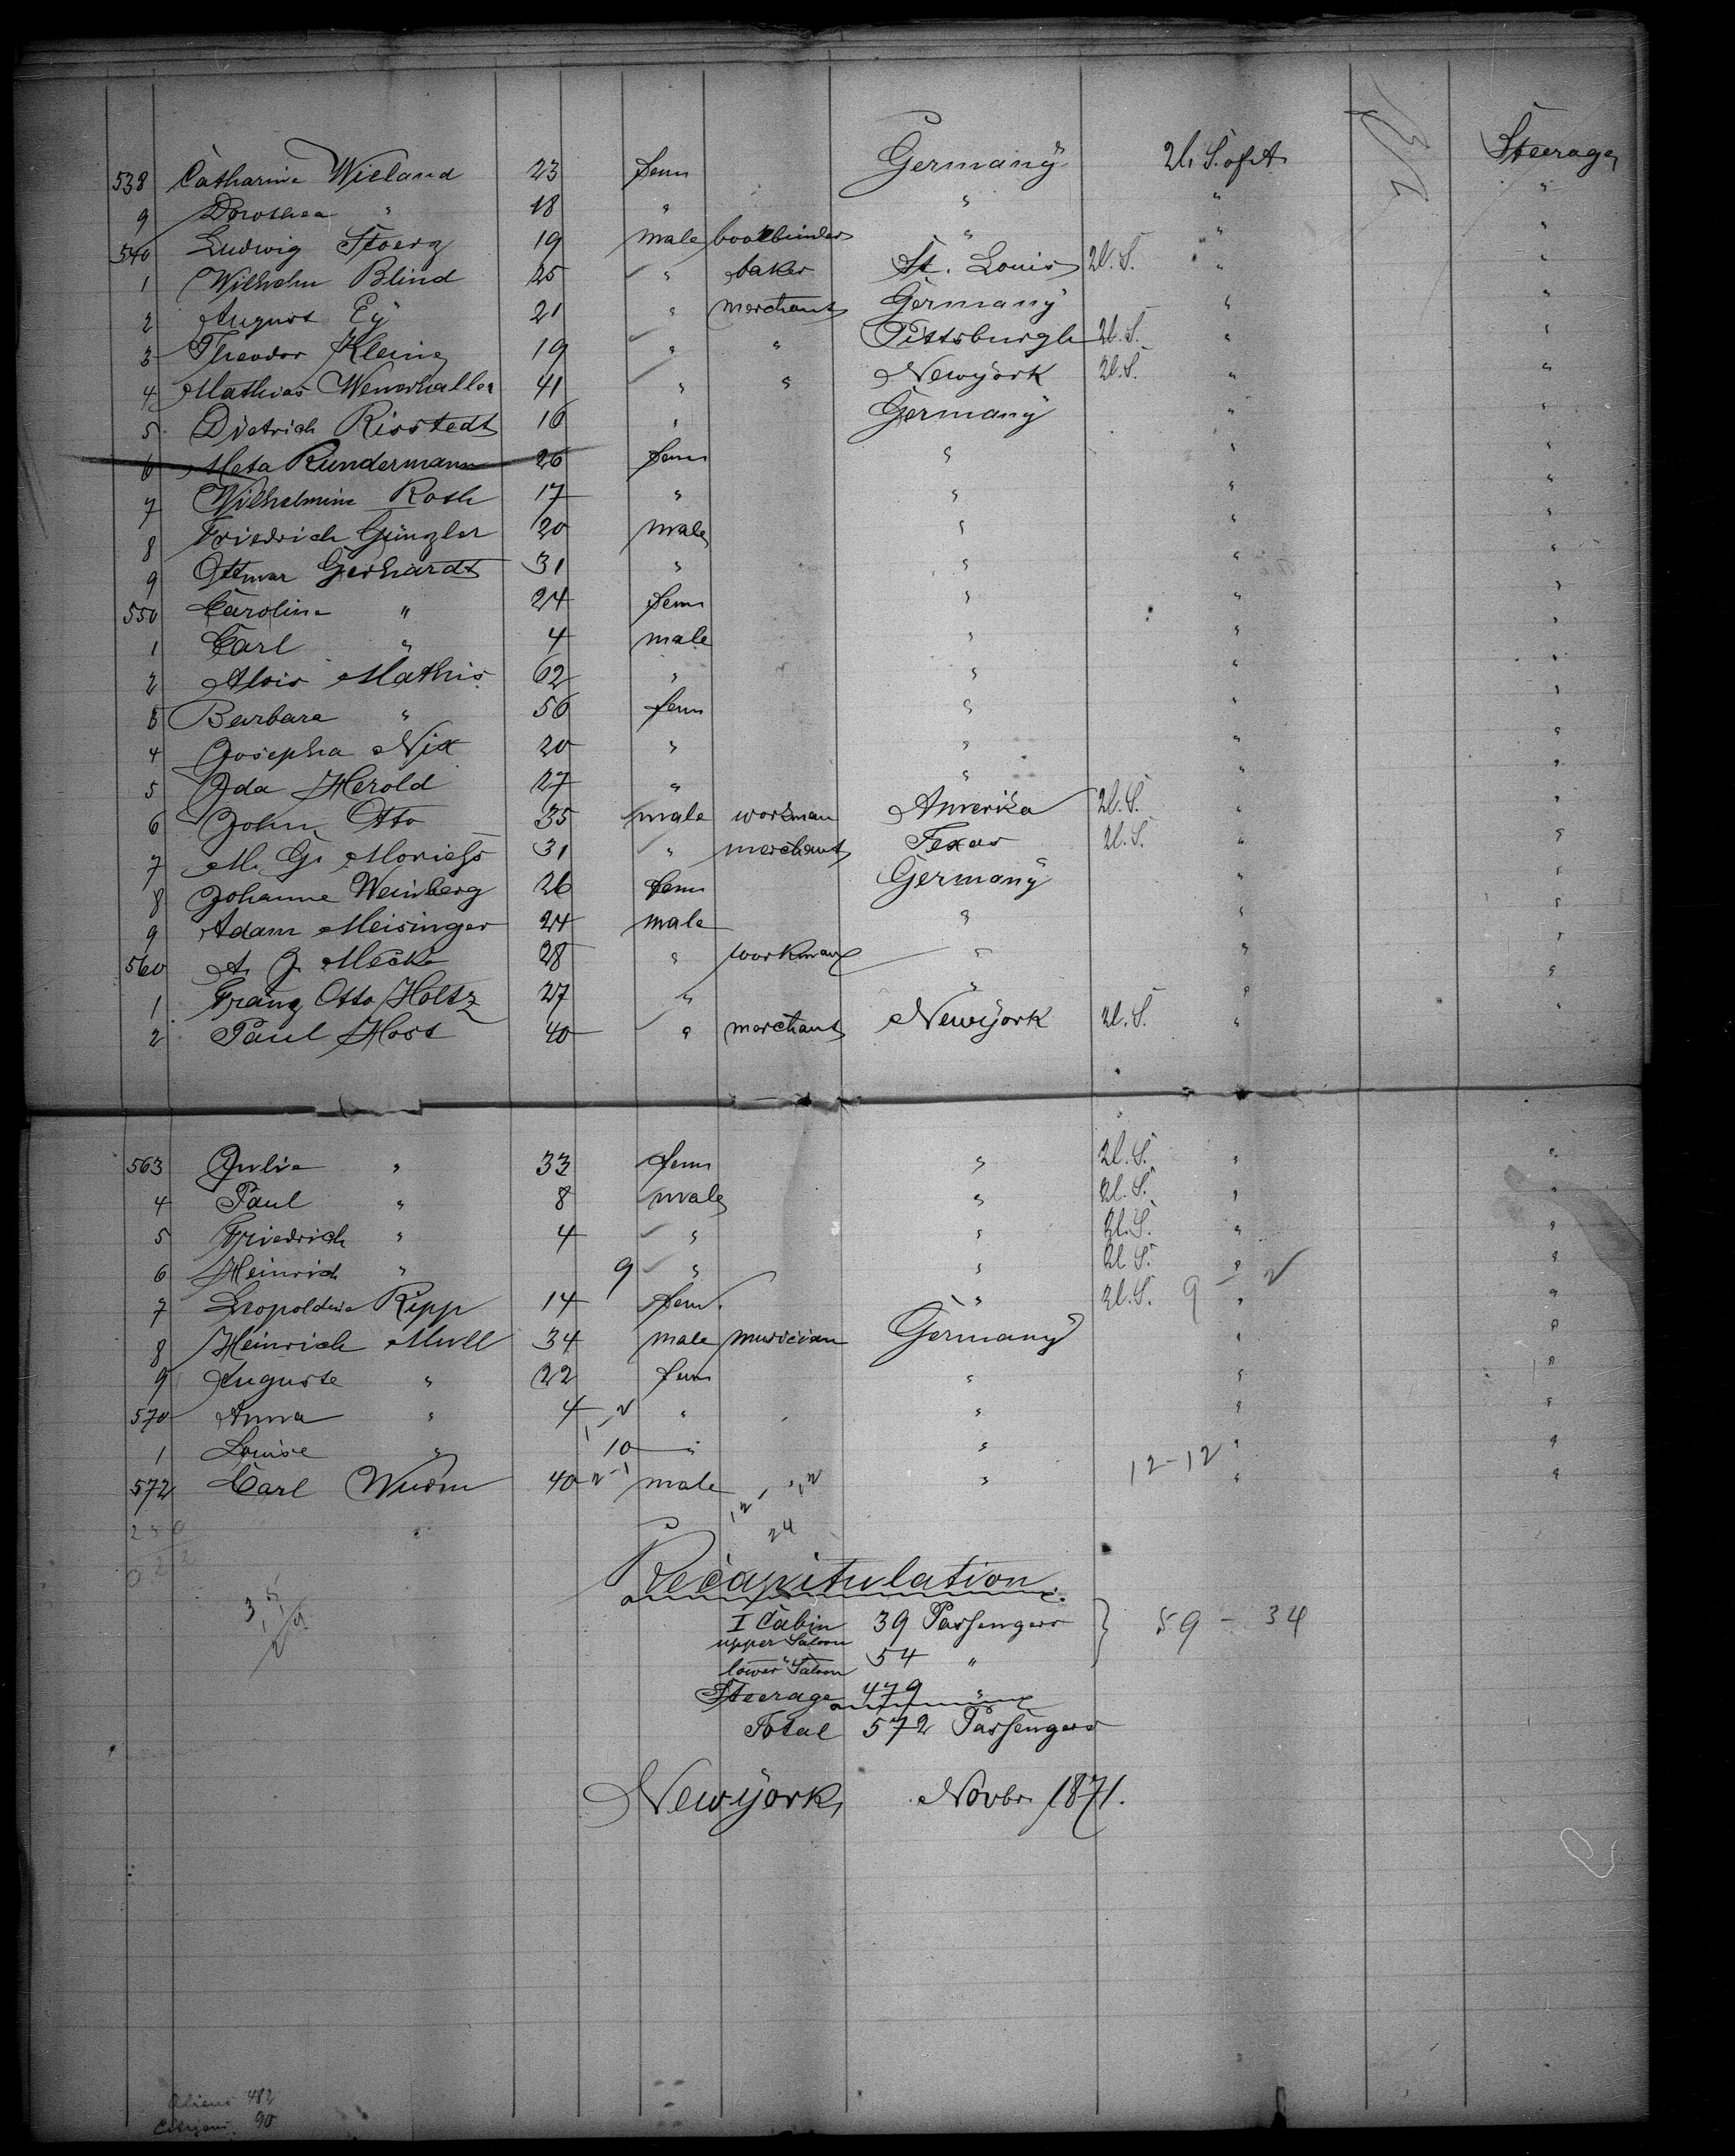 538 Catharine Wieland 23 fem Germany U. S. of A. Steerage
9 Dorothea " 18 " " " "
540 Ludwig Stoerz 19 male bookbinder " " "
1 Wilhelm Blind 25 " baker St. Louis U. S. " "
2 August Eÿ 21 " merchant Germany " "
3 Theodor Kleine 19 " " Pittsburgh U. S. " "
4 Mathias 41 " " Newyork U. S. " "
5 Dietrich Risstedt 16 " Germany " "
6 Meta Rundermann 26 fem " " "
7 Wilhelmine Roth 17 " " " "
8 Friedrich Günzler 20 male " " "
9 Ottmar Gerhardt 31 " " " "
550 Caroline " 24 fem " " "
1 Carl " 4 male " " "
2 Alois Mathis 62 " " " "
3 Barbara " 56 fem " " "
4 Josepha Nix 20 " " " "
5 Ida Herold 27 " " " "
6 John Otto 35 male workman Amerika U. S. " "
7 M. G. 31 " merchant Texas U. S. " "
8 Johanne Weinberg 26 fem Germany " "
9 Adam Meisinger 24 male " " "
560 A. J. Mecke 28 " workman " " "
1 Franz Otto Holtz 27 " " " "
2 Paul Horst 40 " merchant Newyork U. S. " "
563 Julie " 33 fem " U. S. " "
4 Paul " 8 male " U. S. " "
5 Friedrich " 4 " " U. S. " "
6 Heinrich " 9 " " U. S. " "
7 Leopoldine Ripp 14 fem. " U. S. 9 - 2 " "
8 Heinrich Mull 34 male musician Germany " "
9 Auguste " 22 fem " " "
570 Anna " 4 " " " "
1 Louise " 10 " " " "
572 Carl Wurm 40 male " 12-12 " "
24
Recapitulation.
I Cabin 39 Passengers
upper Saloon
lower Saloon 54 " 59 - 34
Steerage 479 "
Total 572 Passengers
Newyork, Novbr. 1871.
Aliens 482
Citizens 90